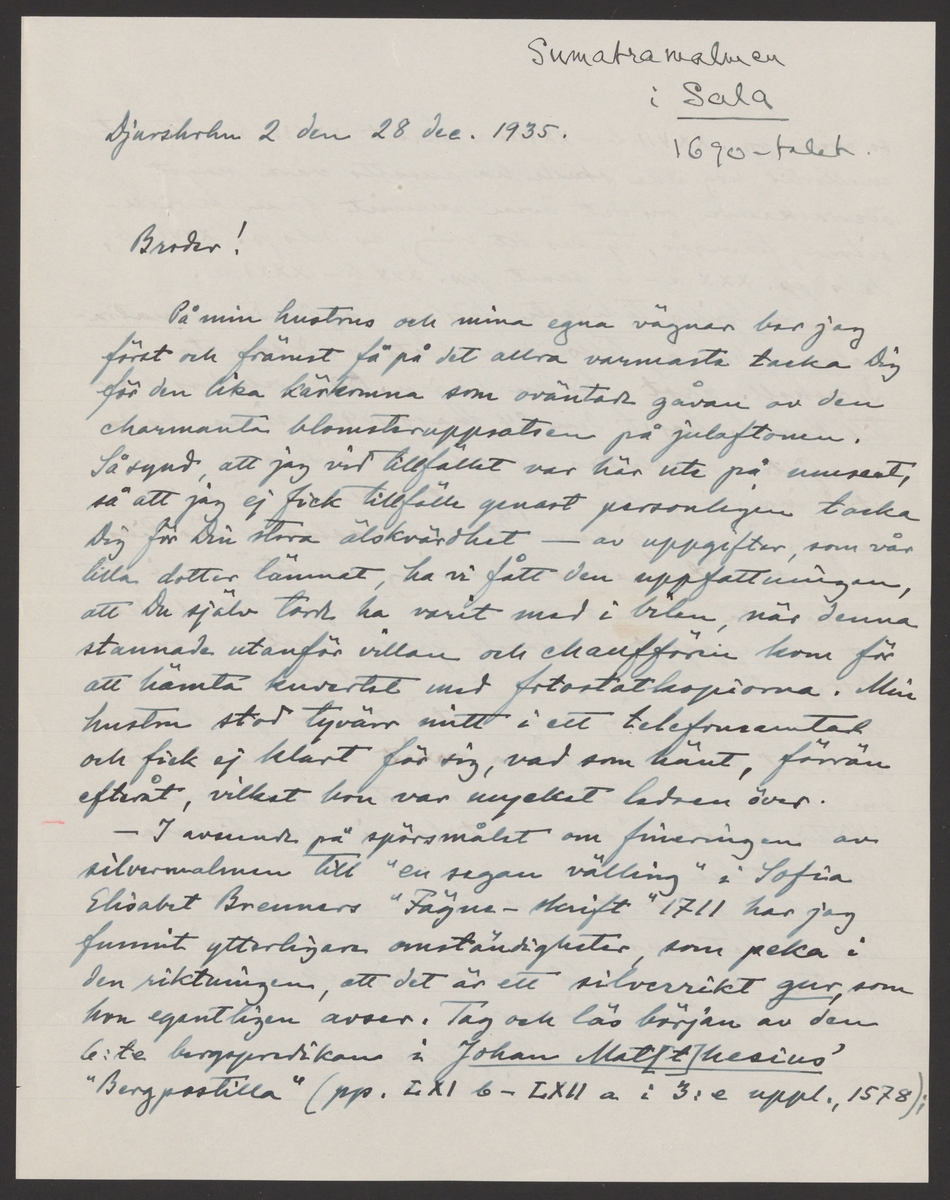 Sumatramalmen
i Sala
1690-talet.
Djursholm 2 den 28 dec. 1935.
Broder!
På min hustrus och mina egna vägnar ber jag
först och främst få på det allra varmaste tacka Dig
för den lika kärkomna som oväntade gåvan av den
charmanta blomsteruppsatsen på julaftonen.
Så synd, att jag vid tillfället var här ute på museet,
så att jag ej fick tillfälle genast personligen tacka
Dig för Din stora älskvärdhet — av uppgifter, som vår
lilla dotter lämnat, ha vi fått den uppfattningen,
att Du själv torde ha varit med i bilen, när denna
stannade utanför villan och chauffören kom för
att hämta kuvertet med fotostatkopiorna. Min
hustru stod tyvärr mitt i ett telefonsamtal
och fick ej klart för sig, vad som hänt, förrän
efteråt, vilket hon var mycket ledsen över.
— I avseende på spörsmålet om fineringen av
silvermalmen till "en segan välling" i Sofia
Elisabet Brenners "Fägne-skrift" 1711 har jag
funnit ytterligare omständigheter, som peka i
den riktningen, att det är ett silverrikt gur, som
hon egentligen avser. Tag och läs början av den
6:te bergspredikan i Johan Mat[t]hesius'
"Bergpostilla" (pp. LXI b – LXII a i 3:e uppl., 1578);